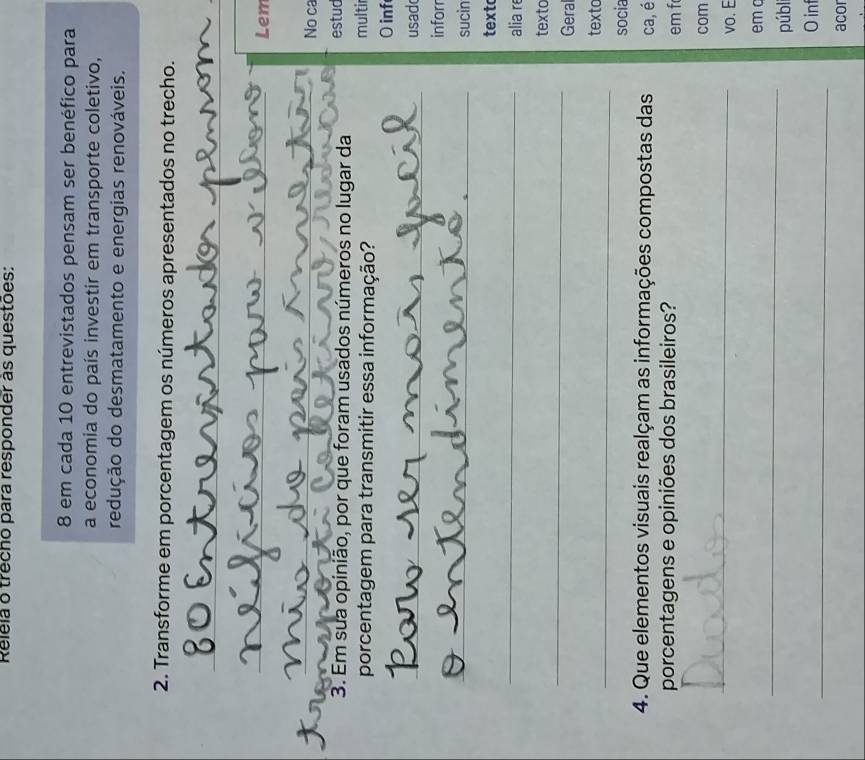 Releia o trecho para responder às questões:
8 em cada 10 entrevistados pensam ser benéfico para
a economia do país investir em transporte coletivo,
redução do desmatamento e energias renováveis.
2. Transforme em porcentagem os números apresentados no trecho.
80 Entrevistados pensam
néficios para
mia do país investir
transporti coletivo, reducão
3. Em sua opinião, por que foram usados números no lugar da
porcentagem para transmitir essa informação?
Para ser mais facil
o entendimento.
4. Que elementos visuais realçam as informações compostas das
porcentagens e opiniões dos brasileiros?
Lem
No ca
estud
multir
O info
usado
inforr
sucin
texto
alia re
texto
Geral
texto
socia
ca, é
em f
com
vo. E
em o
públi
O inf
acor